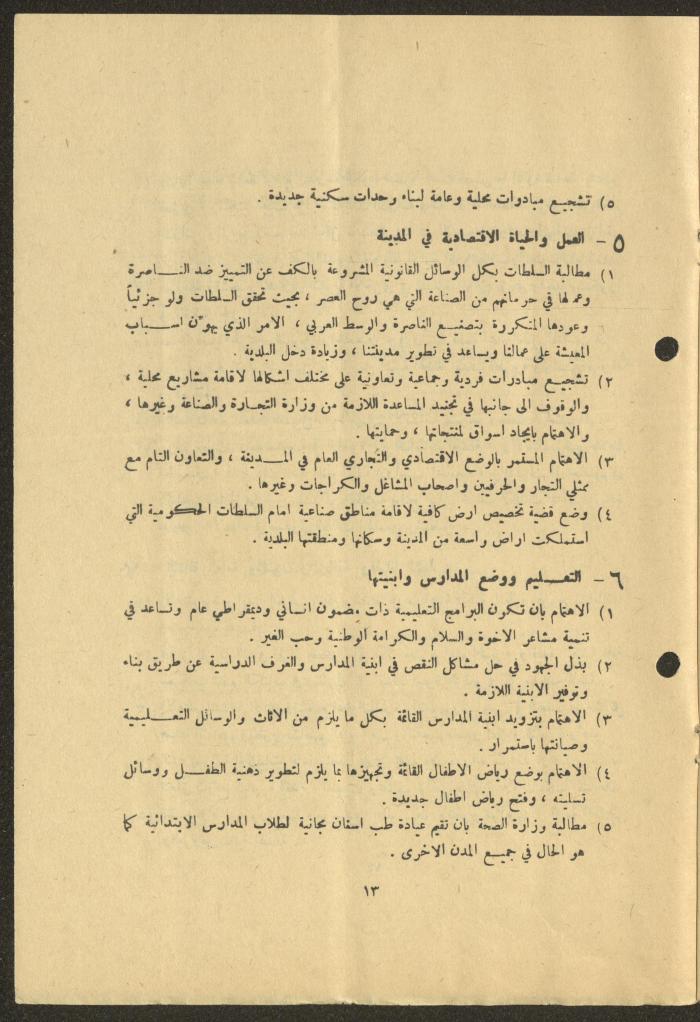 ٥) تشجيع مبادوات محلية وعامة لبناء وحدات سكنية جديدة .
٥ - العمل والحياة الاقتصادية في المدينة
١) مطالبة السلطات بكل الوسائل القانونية المشروعة بالكف عن التمييز ضد النــاصرة
وعمالها في حرمانهم من الصناعة التي هي روح العصر ، بحيث تحقق السلطات ولو جزئياً
وعودها المتكررة بتصنيع الناصرة والوسط العربي ، الامر الذي يهوّن اســباب
المعيشة على عمالنا ويساعد في تطوير مدينتنا ، وزيادة دخل البلدية .
٢) تشجيع مبادرات فردية وجماعية وتعاونية على مختلف اشكالها لاقامة مشاريع محلية ،
والوقوف الى جانبها في تجنيد المساعدة اللازمة من وزارة التجارة والصناعة وغيرها ،
والاهتمام بايجاد اسواق لمنتجاتها ، وحمايتها .
٣) الاهتمام المستمر بالوضع الاقتصادي والتجاري العام في المــدينة ، والتعاون التام مع
ممثلي التجار والحرفيين واصحاب المشاغل والكراجات وغيرها .
٤) وضع قضية تخصيص ارض كافية لاقامة مناطق صناعية امام السلطات الحكومية التي
استملكت اراض واسعة من المدينة وسكانها ومنطقتها البلدية .
٦ - التعــليم ووضع المدارس وابنيتها
١) الاهتمام بان تكون البرامج التعليمية ذات مضمون انساني وديمقراطي عام وتساعد في
تنمية مشاعر الاخوة والسلام والكرامة الوطنية وحب الغير .
٢) بذل الجهود في حل مشاكل النقص في ابنية المدارس والغرف الدراسية عن طريق بناء
وتوفير الابنية اللازمة .
٣) الاهتمام بتزويد ابنية المدارس القائمة بكل ما يلزم من الاثاث والوسائل التعــليمية
وصيانتها باستمرار .
٤) الاهتمام بوضع رياض الاطفال القائمة وتجهيزها بما يلزم لتطوير ذهنية الطفــل ووسائل
تسليته ، وفتح رياض اطفال جديدة .
٥) مطالبة وزارة الصحة بان تقيم عيادة طب اسنان مجانية لطلاب المدارس الابتدائية كما
هو الحال في جميع المدن الاخرى .
١٣